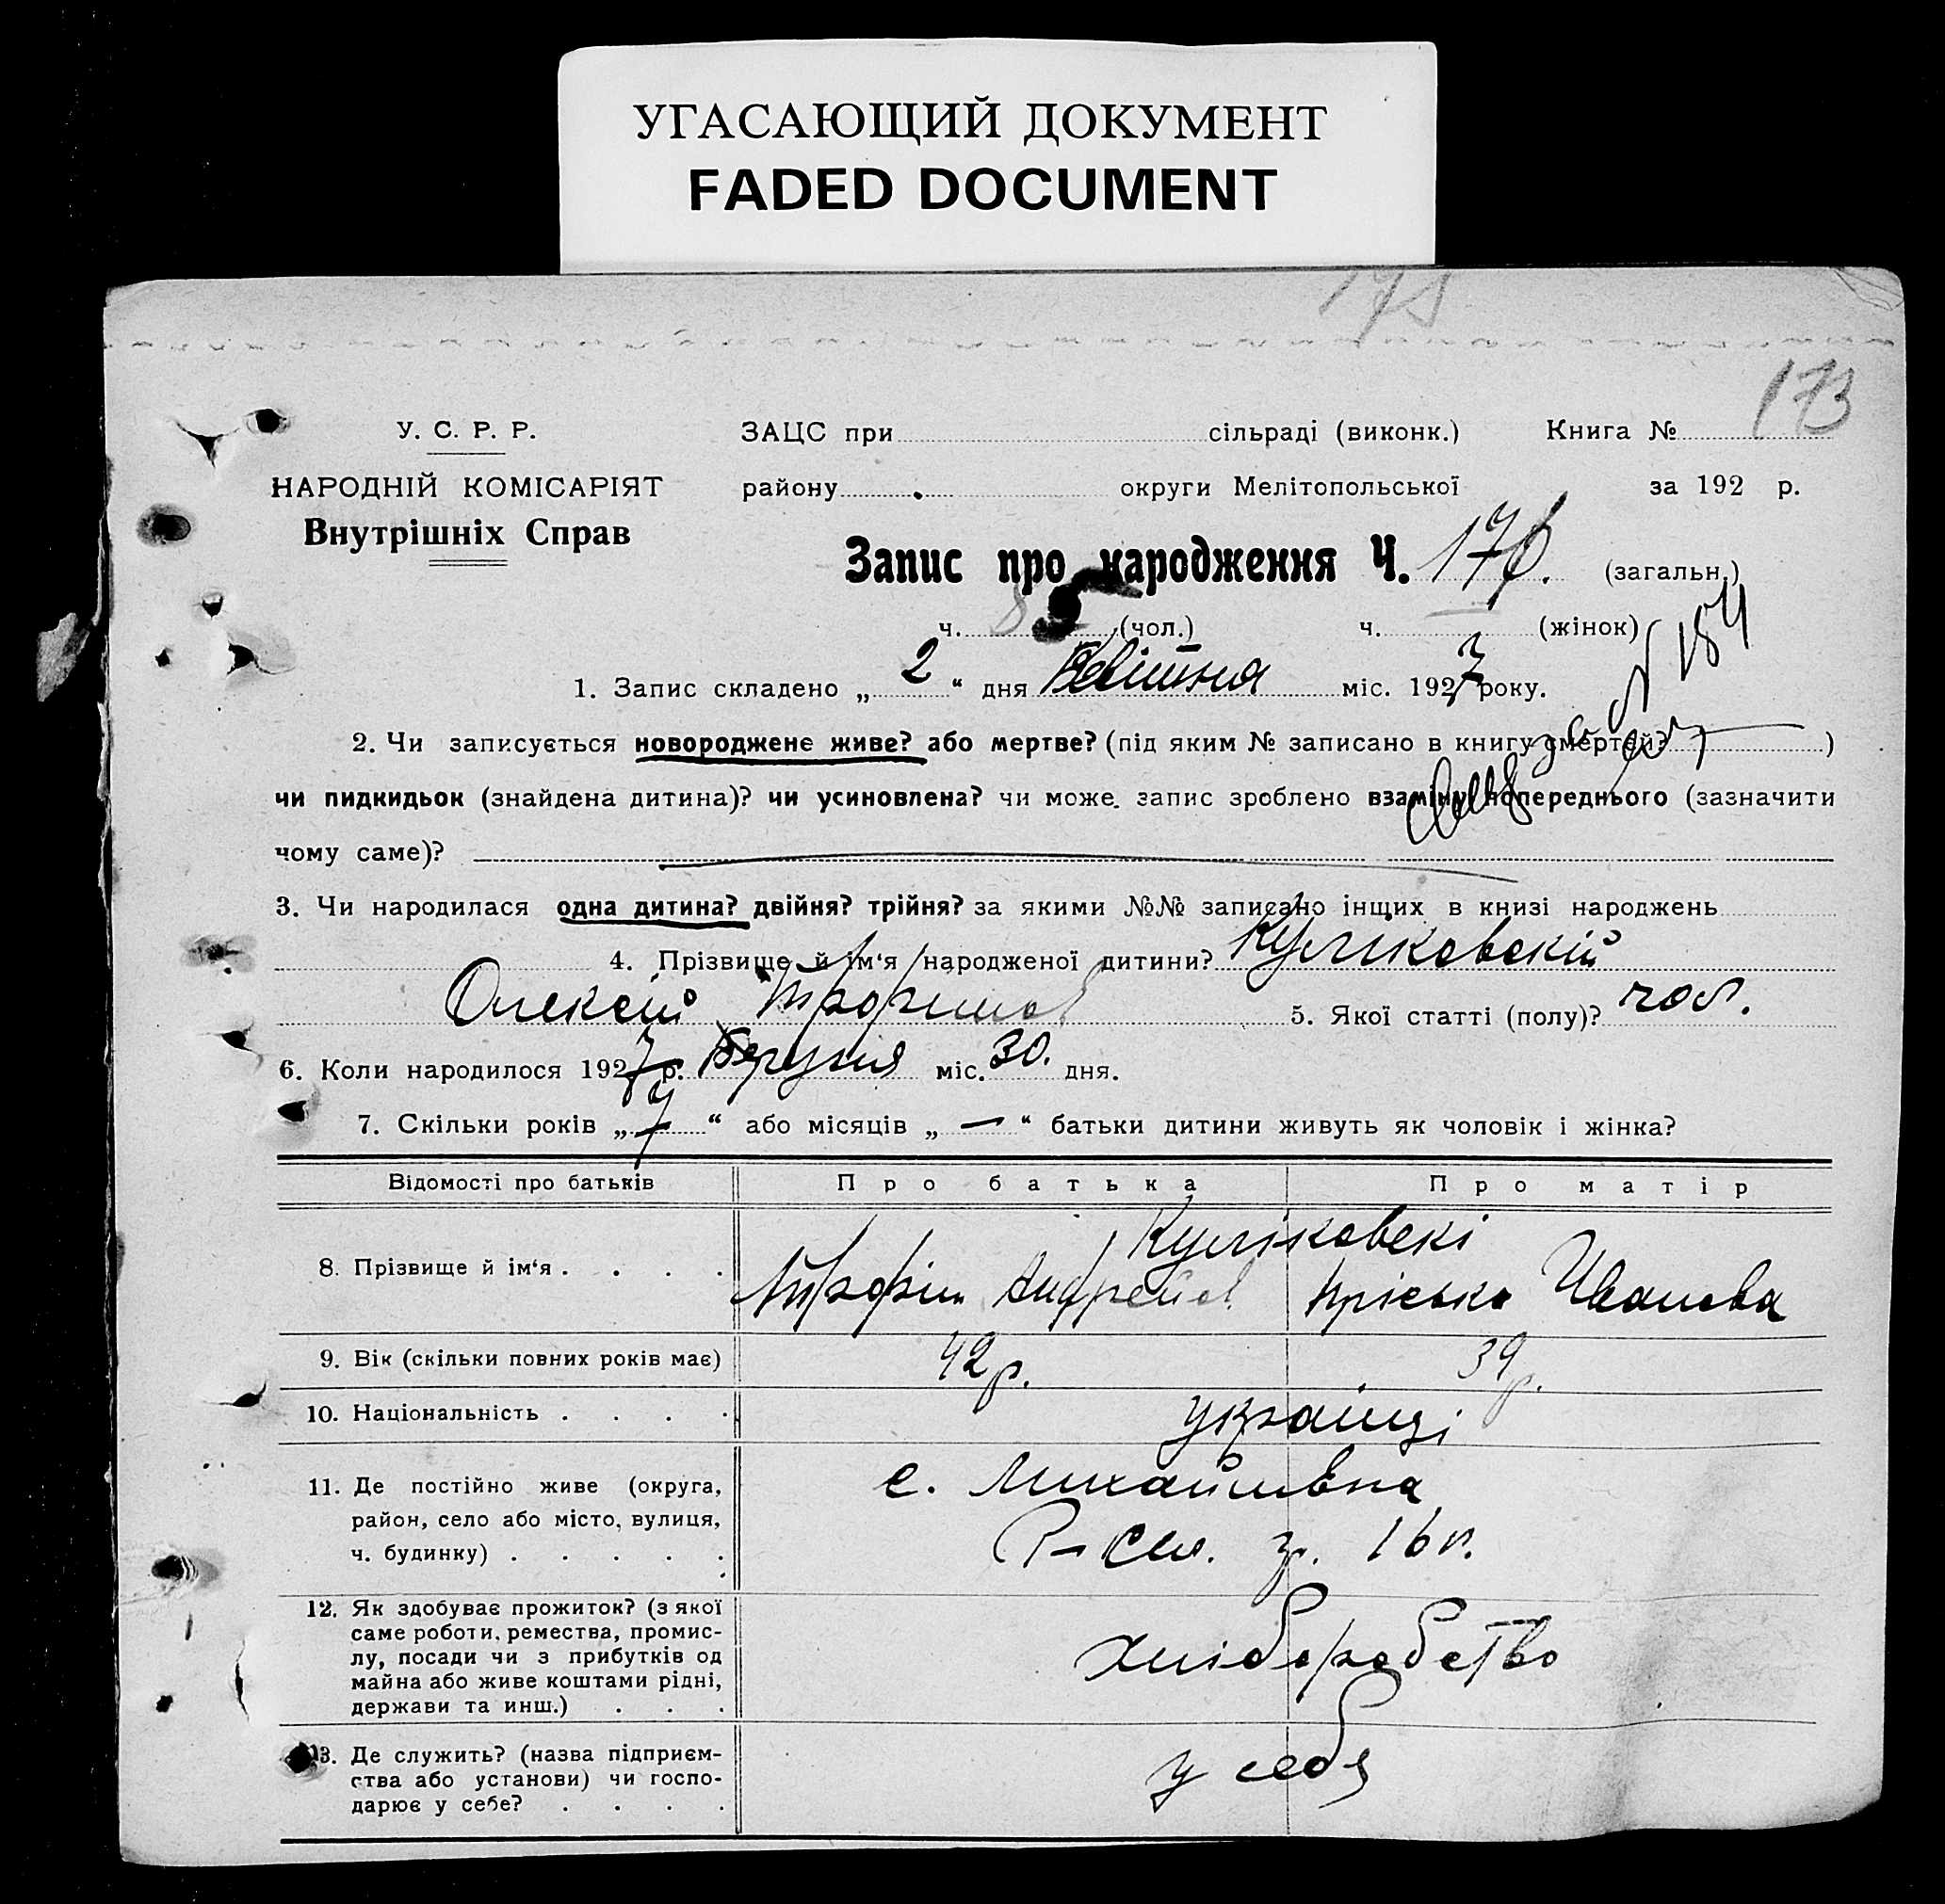 УГАСАЮЩИЙ ДОКУМЕНТ
FADED DOCUMENT
173
У. С. Р. Р.
ЗАЦС при сільраді (виконк.) Книга №
НАРОДНІЙ КОМІСАРІЯТ
району округи Мелітопольської за 192 р.
Внутрішніх Справ
Запис про народження Ч. 176. (загальн.)
ч. (чол.) ч. (жінок)
№ 184
1. Запис складено „ 2 “ дня Квітня міс. 1927 року.
2. Чи записується новороджене живе? або мертве? (під яким № записано в книгу смертей? )
чи пидкидьок (знайдена дитина)? чи усиновлена? чи може запис зроблено взаміну попереднього (зазначити
чому саме)?
3. Чи народилася одна дитина? двійня? трійня? за якими №№ записано інщих в книзі народжень
4. Прізвище й ім‘я народженої дитини? Куліковскій
Олексій Трофимов 5. Якої статті (полу)? чол.
6. Коли народилося 1927 р. Березня міс. 30. дня.
7. Скільки років „ “ або місяців „ — “ батьки дитини живуть як чоловік і жінка?
Відомості про батьків Про батька Про матір
Куліковскі
8. Прізвище й ім‘я . . . . Трофім Андреїв Пріська Іванова
9. Вік (скільки повних років має) 42 р. 39 р.
10. Національність . . . . українці
11. Де постійно живе (округа, с. Михайлівка
район, село або місто, вулиця,
ч. будинку) . . . . . 16 п.
12. Як здобуває прожиток? (з якої
саме роботи, ремества, промис-
лу, посади чи з прибутків од хліборобство
майна або живе коштами рідні,
держави та инш.) . . .
13. Де служить? (назва підприєм-
ства або установи) чи госпо- у себя
дарює у себе? . . . .